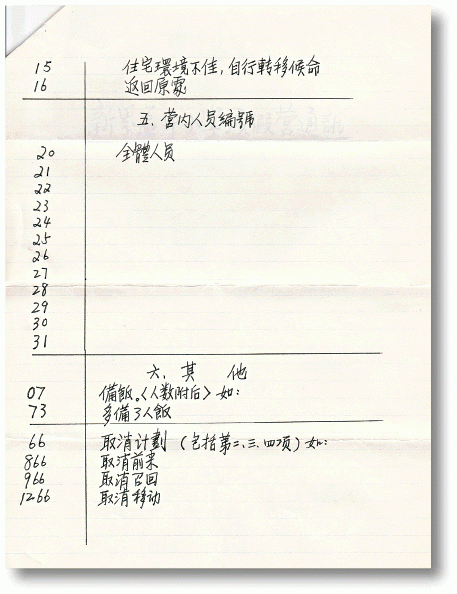 15 住宅環境不佳，自行转移候命
16 返回原窝
五、营内人员编號
20 全體人员
21
22
23
24
25
26
27
28
29
30
31
六、其他
07 備飯。〈人数附后〉如：
73 多備3人飯
66 取消计劃（包括第二、三、四项）如：
866 取消前来
966 取消召回
1266 取消移动